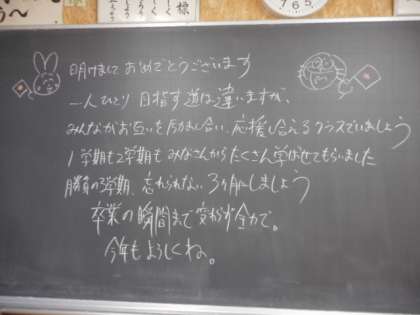 標
明けまして おめでとうございます
一人ひとり 目指す道は違いますが、
みんながお互いを励まし合い、応援し合えるクラスでいましょう
1学期も2学期も みなさんから たくさん学ばせてもらいました
勝負の3学期、忘れられない 3ヶ月にしましょう
卒業の瞬間まで変わらず全力で。
今年もよろしくね。